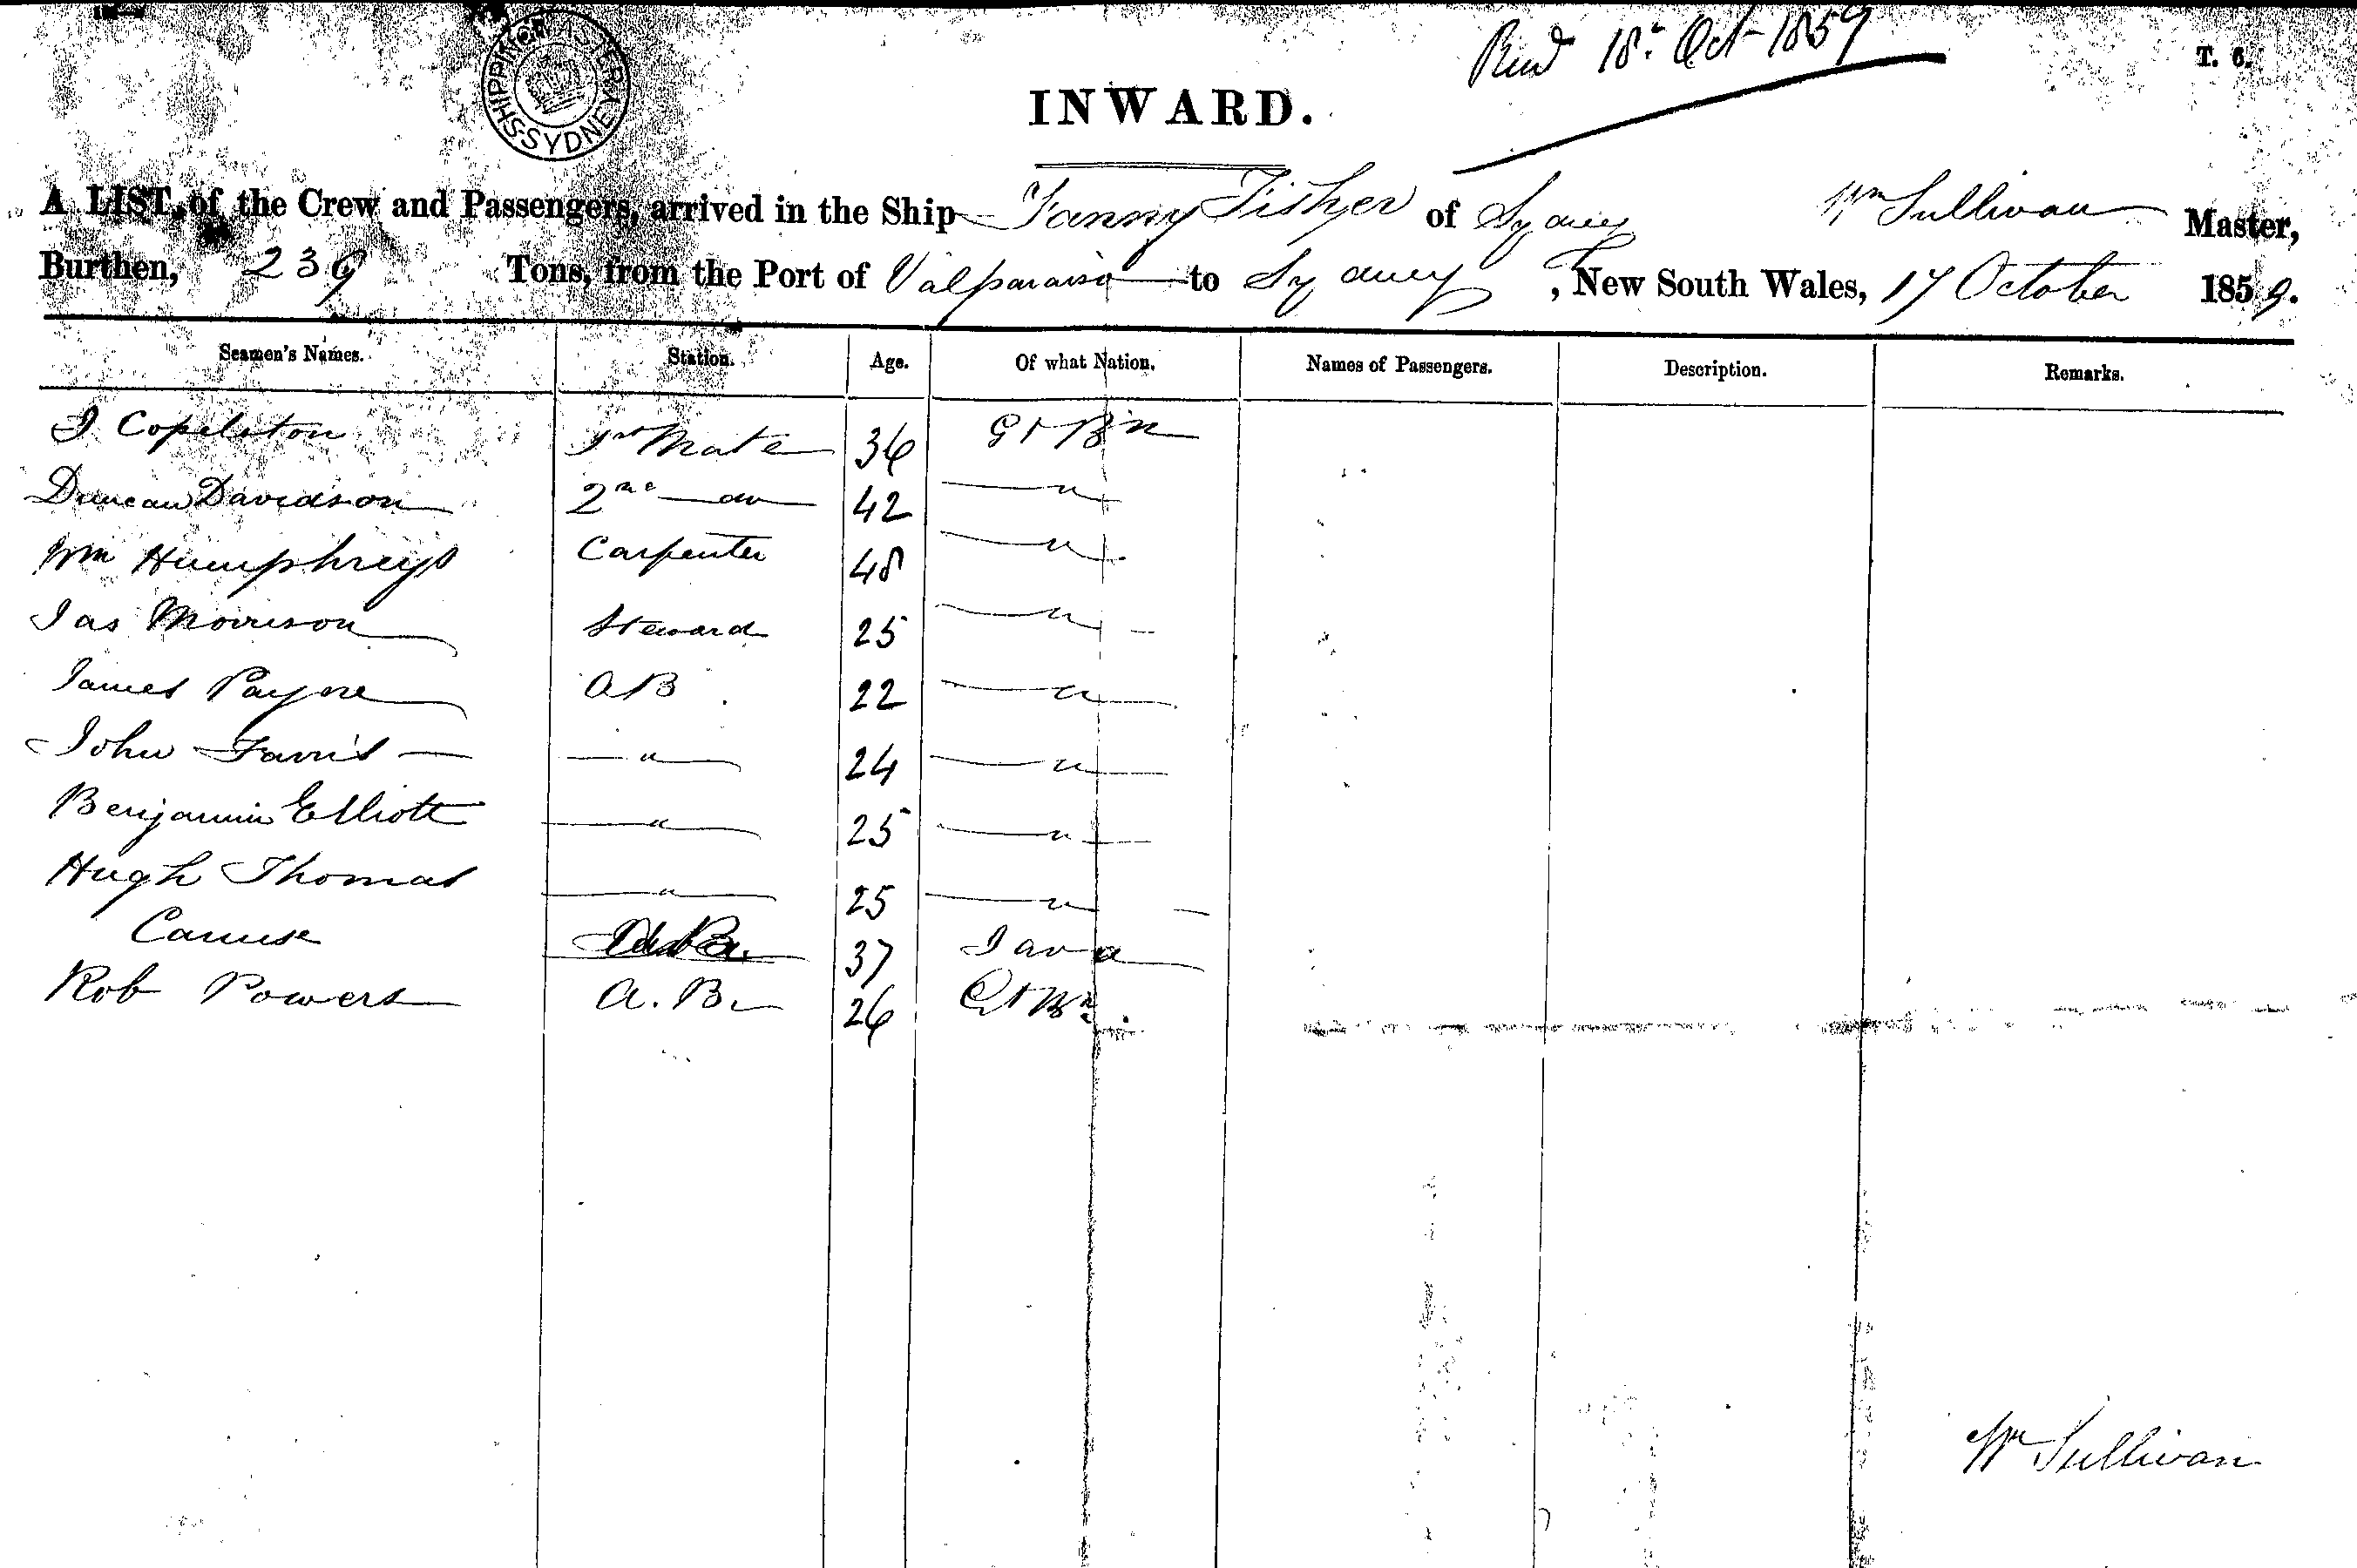 SHIPPING MASTER SYDNEY
Recd 18: Oct 1859
T. 6.
INWARD.
A LIST, of the Crew and Passengers, arrived in the Ship Fanny Fisher of Sydney Wm Sullivan Master,
Burthen, 239 Tons, from the Port of Valparaiso to Sydney, New South Wales, 17 October 1859.
Seamen's Names. Station. Age. Of what Nation. Names of Passengers. Description. Remarks.
J Copelston 1st Mate 36 Gt Bn
Duncan Davidson 2nd do 42 "
Wm Humphreys Carpenter 48 "
Jas Morrison Steward 25 "
James Payne AB 22 "
John " 24 "
Benjamin Elliott " 25 "
Hugh Thomas " 25 "
37 Java
Rob Powers A. B. 26 Gt Bn
Wm Sullivan